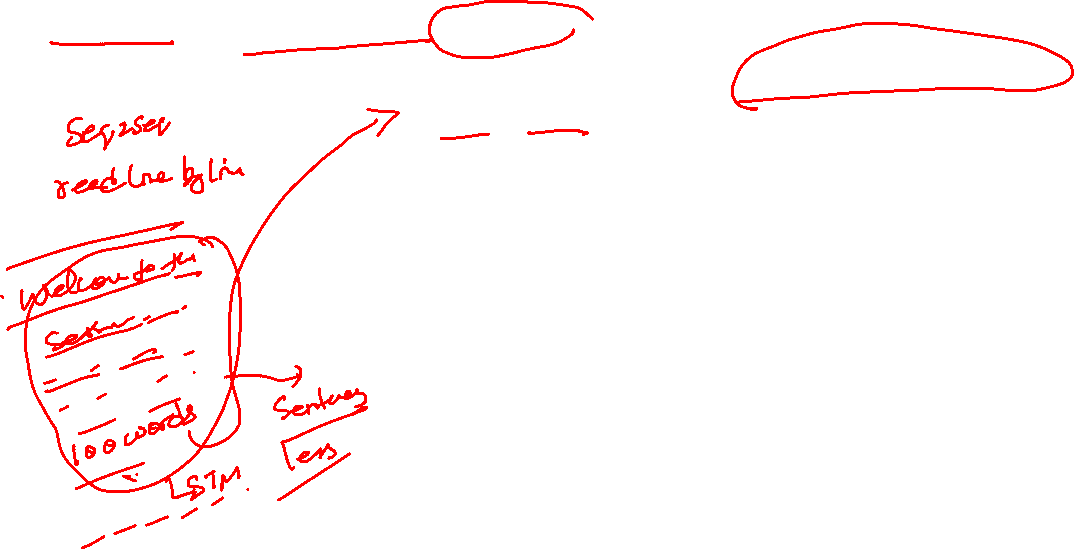 Seq2Seq
read line by line
Welcome to the
100 words
Sentences
less
LSTM